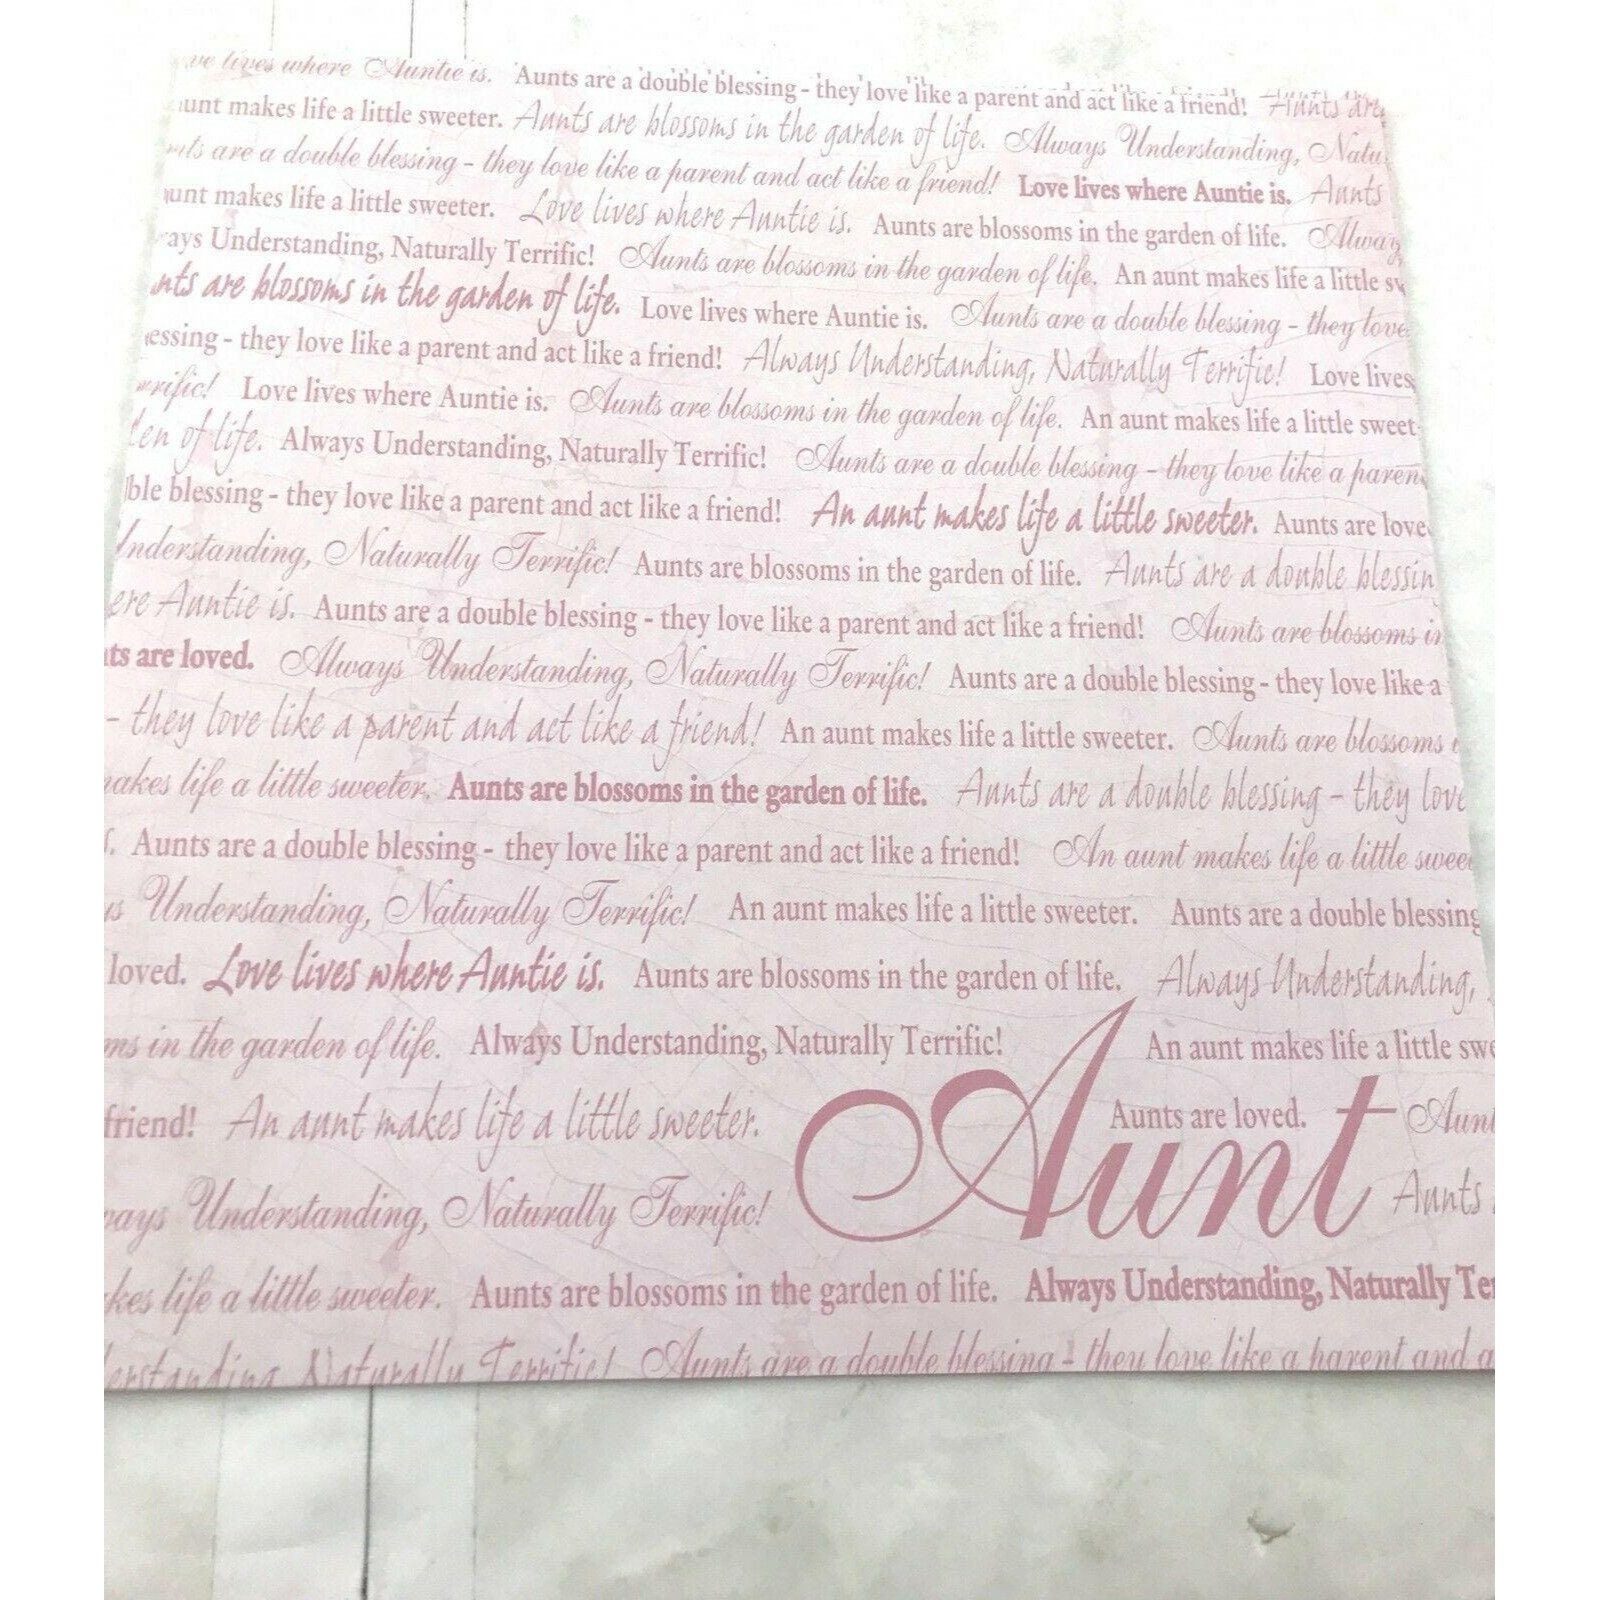 lives where Auntie is. Aunts are a double blessing - they love like a parent and act like a friend! Aunts are
aunt makes life a little sweeter. Aunts are blossoms in the garden of life. Always Understanding, Natu
are a double blessing - they love like a parent and act like a friend! Love lives where Auntie is. Aunts
aunt makes life a little sweeter. Love lives where Auntie is. Aunts are blossoms in the garden of life. Alway
ays Understanding, Naturally Terrific! Aunts are blossoms in the garden of life. An aunt makes life a little
nts are blossoms in the garden of life. Love lives where Auntie is. Aunts are a double blessing - they love
essing - they love like a parent and act like a friend! Always Understanding, Naturally Terrific! Love lives
rific! Love lives where Auntie is. Aunts are blossoms in the garden of life. An aunt makes life a little sweet
den of life. Always Understanding, Naturally Terrific! Aunts are a double blessing - they love like a paren
ble blessing - they love like a parent and act like a friend! An aunt makes life a little sweeter. Aunts are love
Understanding, Naturally Terrific! Aunts are blossoms in the garden of life. Aunts are a double blessin
ere Auntie is. Aunts are a double blessing - they love like a parent and act like a friend! Aunts are blossoms in
ts are loved. Always Understanding, Naturally Terrific! Aunts are a double blessing - they love like a
- they love like a parent and act like a friend! An aunt makes life a little sweeter. Aunts are blossoms
akes life a little sweeter. Aunts are blossoms in the garden of life. Aunts are a double blessing - they love
Aunts are a double blessing - they love like a parent and act like a friend! An aunt makes life a little sweet
Understanding, Naturally Terrific! An aunt makes life a little sweeter. Aunts are a double blessing
loved. Love lives where Auntie is. Aunts are blossoms in the garden of life. Always Understanding,
ms in the garden of life. Always Understanding, Naturally Terrific! An aunt makes life a little swe
friend! An aunt makes life a little sweeter. Aunts are loved. Aunt
Aunt
ays Understanding, Naturally Terrific! Aunts
kes life a little sweeter. Aunts are blossoms in the garden of life. Always Understanding, Naturally Ter
erstanding Naturally Terrific! Aunts are a double blessing - they love like a parent and a